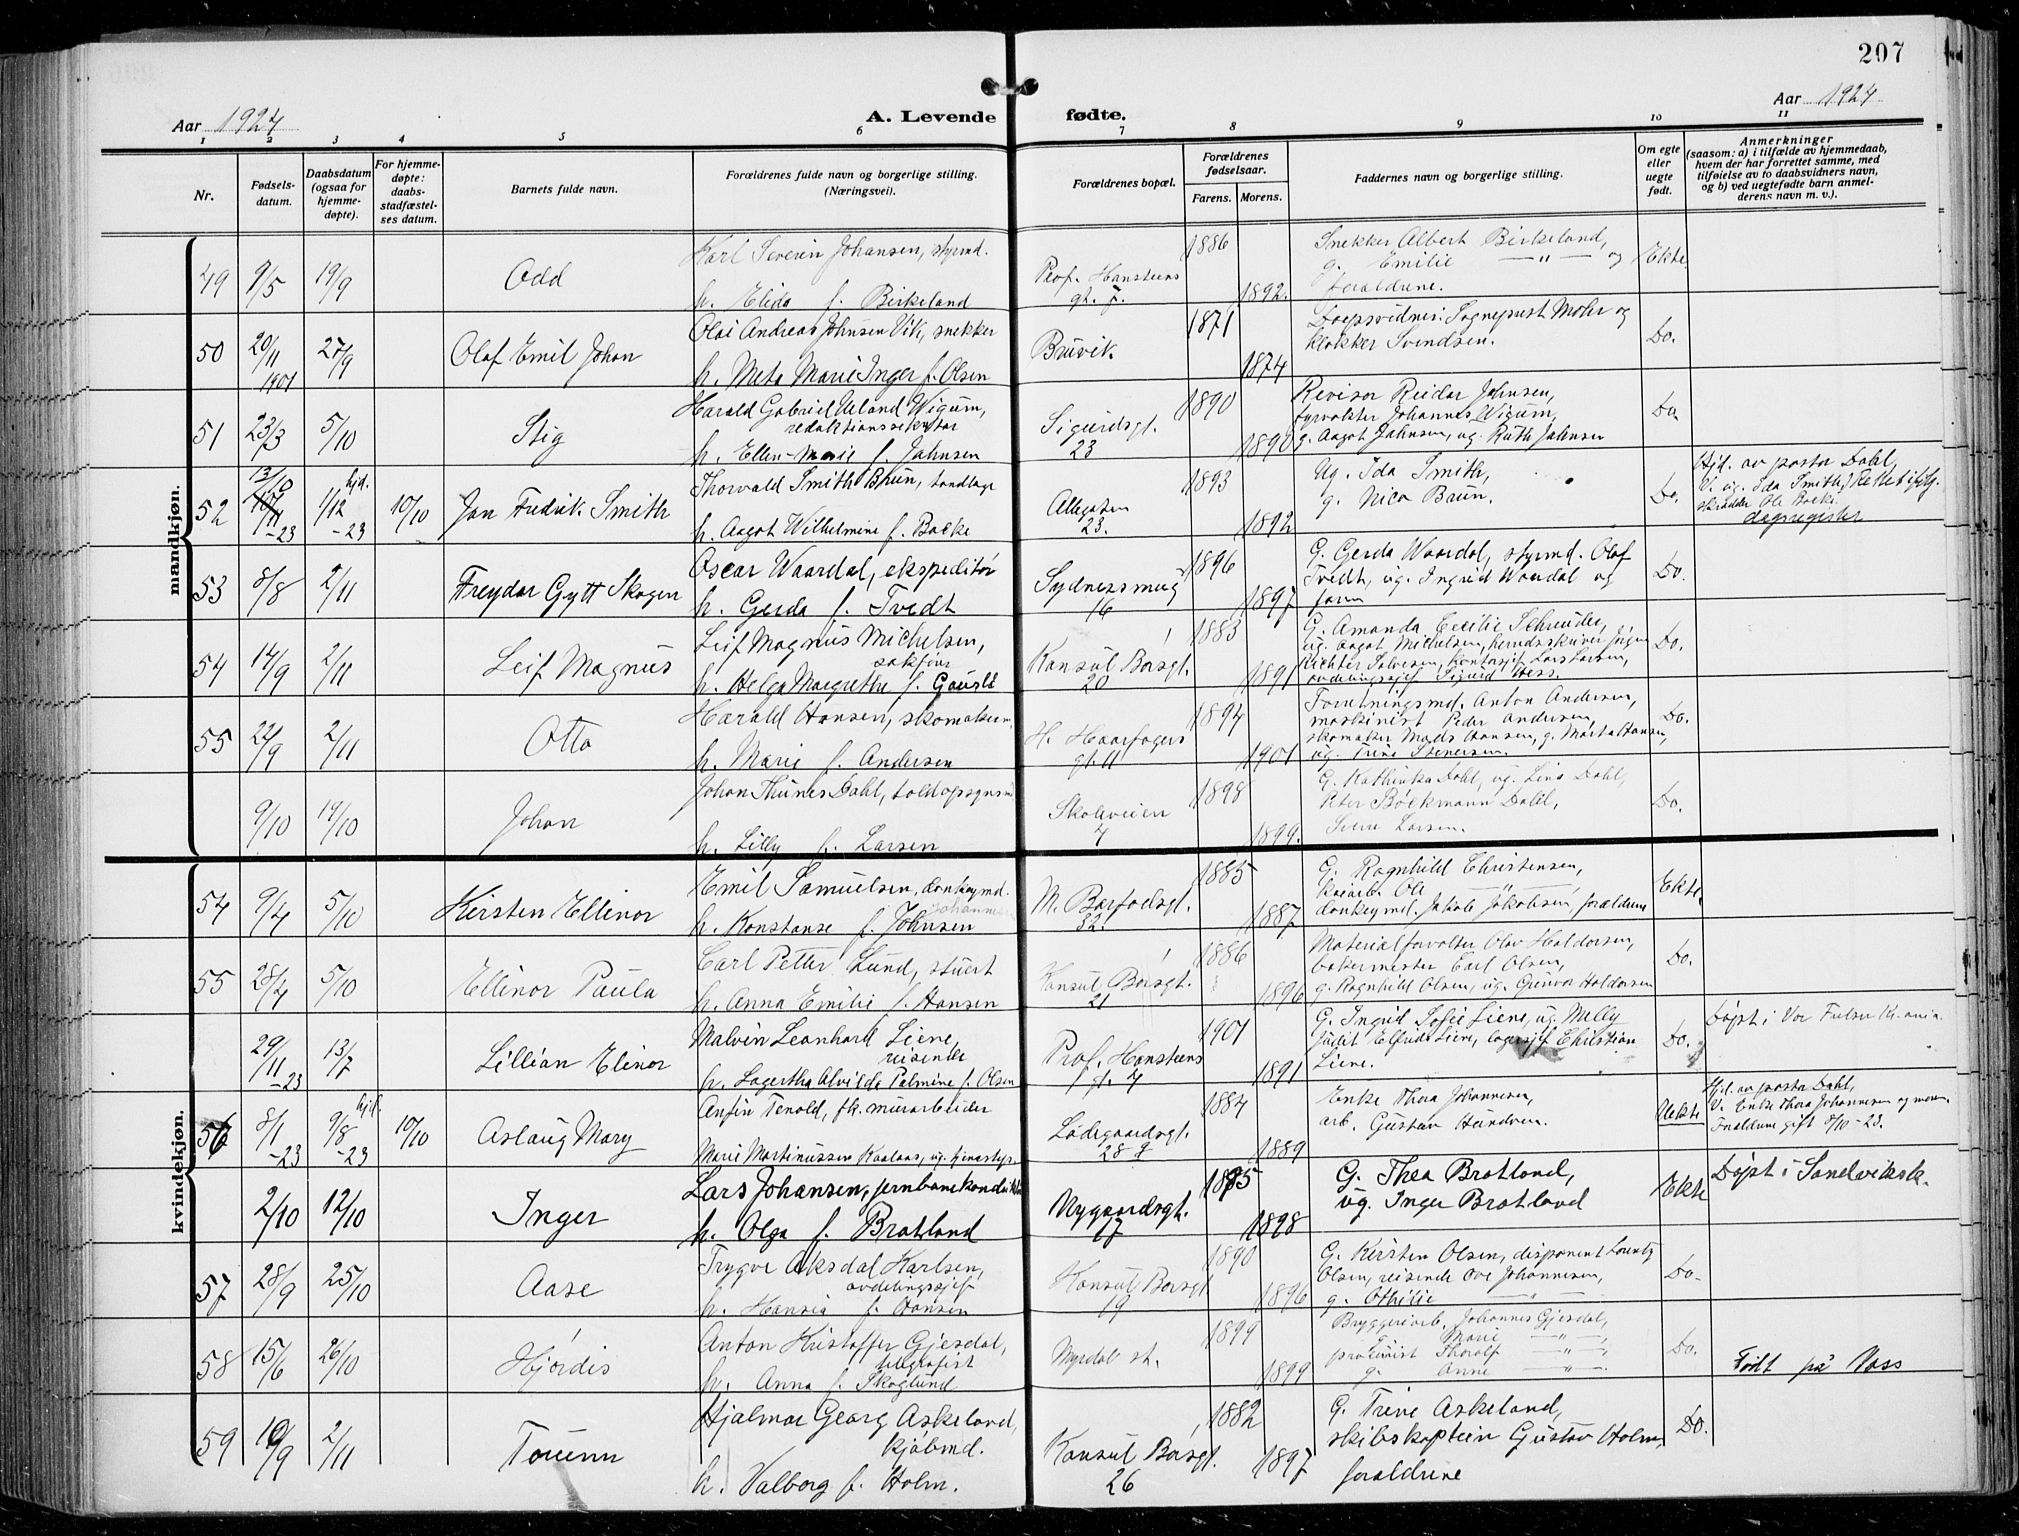 207
Aar 1924
A. Levende fødte.
Aar 1924
1 2 3 4 5 6 7 8 9 10 11
Nr.
Fødsels-
datum.
Daabsdatum
(ogsaa for
hjemme-
døpte).
For hjemme-
døpte:
daabs-
stadfæstel-
ses datum.
Barnets fulde navn.
Forældrenes fulde navn og borgerlige stilling.
(Næringsvei).
Forældrenes bopæl.
Forældrenes
fødselsaar.
Farens. Morens.
Faddernes navn og borgerlige stilling.
Om egte
eller
uegte
født.
Anmerkninger
(saasom: a) i tilfælde av hjemmedaab,
hvem der har forrettet samme, med
tilføielse av to daabsvidners navn,
og b) ved uegtefødte barn anmel-
derens navn m. v.).
mandkjøn.
49 9/5 19/9 Odd
Karl Severin Johansen, styrmd.
h. Elida f. Birkeland
Prof. Hansteens
gt. 7.
1886 1892.
Snekker Albert Birkeland,
g. Emilie — " — og
forældrene.
Ekte.
50 20/11 1901 27/9 Olaf Emil Johan
Olai Andreas Johnsen Vik, snekker
h. Meta Marie Inger f. Olsen
Bruvik
1871 1874
Doepsvidner: Sogneprest Mohr og
klokker Svendsen.
Do.
51 23/3 5/10 Stig
Harald Gabriel Ueland Wigum,
redaktionssekretær
h. Ellen-Marie f. Johnsen
Sigurdsgt.
23
1890 1890
Revisor Reidar Johnsen,
fyrvokter Johannes Wigum,
g. Aagot Johnsen, ug. Ruth Johnsen
Do.
52 13/10 10/11 -23 hjd. 1/12 -23 10/10 Jan Fredrik Smith
Thorvald Smith Brun, tandlæge
h. Aagot Wilhelmine f. Bakke
Allegaten
23.
1893 1892
Ug. Ida Smith,
g. Nica Brun.
Do.
Hjd. av pastor Dahl,
V. ug. Ida Smith,
skrædder Ole
dapregister
53 8/8 2/11 Freydar Gytt Skogen
Oscar Waardal, ekspeditør
h. Gerda f. Tvedt
Sydnessmug
16
1896 1897
G. Gerda Waardal, styrmd. Olaf
Tvedt, ug. Ingrid Waardal og
faren
Do.
54 14/9 2/11 Leif Magnus
Leif Magnus Michelsen,
sakfører
h. Helga Margrethe f.
Konsul Børsgt.
20
1883 1891
G. Amanda Cecilie Schreuder,
ug. Aagot Michelsen,
Richter Salvesen, kontorsjef Lars Larsen,
avdelingssjef Sigurd Hess.
Do.
55 22/9 2/11 Otto
Harald Hansen, skomakerm.
h. Marie f. Andersen
H. Haarfagers
gt. 11
1894 1901
Forretningsmd. Anton Andersen,
maskinist Peder Andersen,
skomaker Mads Hansen, g. Marta Hansen,
ug. Trine Stenersen.
Do.
9/10 19/10 Johan
Johan Thunes Dahl, toldopsynsm
h. Lilly f. Larsen
Skoleveien
4
1898 1899.
G. Kathinka Dahl, ug. Lina Dahl,
Peter Bøckmann Dahl,
Sverre Larsen.
Do.
kvindekjøn.
54 9/4 5/10 Kirsten Ellinor
Emil Samuelsen, donkeymd.
h. Konstanse f. Johnsen
M. Barfodsgt.
32.
1885 1887
G. Ragnhild Christensen,
kaiarb. Ole — " —
donkeymd. Jakob Jakobsen, forældrene
Ekte
55 28/4 5/10 Ellinor Paula
Carl Petter Lund, stuert
h. Anna Emilie f. Hansen
Konsul Børsgt.
21
1886 1896
Materialforvalter Olav Haldorsen,
bakermester Carl Olsen,
g. Ragnhild Olsen, ug. Gunvor Haldorsen
Do.
29/11 -23 13/7 Lillian Elinor
Malvin Leonhard Liene,
reisende
h. Lagertha Alvilde Palmine f. Olsen
Prof. Hansteens
gt. 4
1901 1891
G. Ingrid Sofie Liene, ug. Melly
Judit Elfrida Liene, lagersjef Christian
Liene.
Do.
Døpt i Vor Frelser Kr.ania.
56 8/1 -23 hjd. 9/8 -23 10/10 Aslaug Mary
Anfin Tenold, fk. murarbeider
Marie Martinussen Kaalaas, ug.
Lødegaardsgt.
28 g
1884 1889
Enke Thora Johannesen,
arb. Gustav Hundven.
Uekte
Hjd. av pastor Dahl,
V. Enke Thora Johannesen og moren
Forældrene gift 8/10 -23.
2/10 12/10 Inger
Lars Johansen, jernbanekonduktør
h. Olga f. Bratland
Nygaardsgt.
17
1895 1898
G. Thea Bratland,
ug. Inger Bratland
Ekte
Døpt i Sandviksk.
57 28/9 25/10 Aase
Trygve Aksdal Karlsen,
avdelingssjef
h. Hansia f. Hansen
Konsul Børsgt.
19
1890 1896
G. Kirsten Olsen, disponent Lorentz
Olsen, reisende Ove Johannesen,
g. Othilie — " —
Do.
58 15/6 26/10 Hjørdis
Anton Kristoffer Gjesdal,
telegrafist
h. Anna f. Skoglund
Myrdal st.
1899 1899
Bryggeriarb. Johannes Gjesdal,
Fr. Marie — " —,
Thoralf — " —
g. Anne — " —.
Do.
Født på Voss
59 19/9 2/11 Torunn
Hjalmar Georg Askeland,
kjøbmd.
h. Valborg f. Holm.
Konsul Børsgt.
26
1882 1897
G. Trine Askeland,
skibskaptein Gustav Holm,
forældrene
Do.